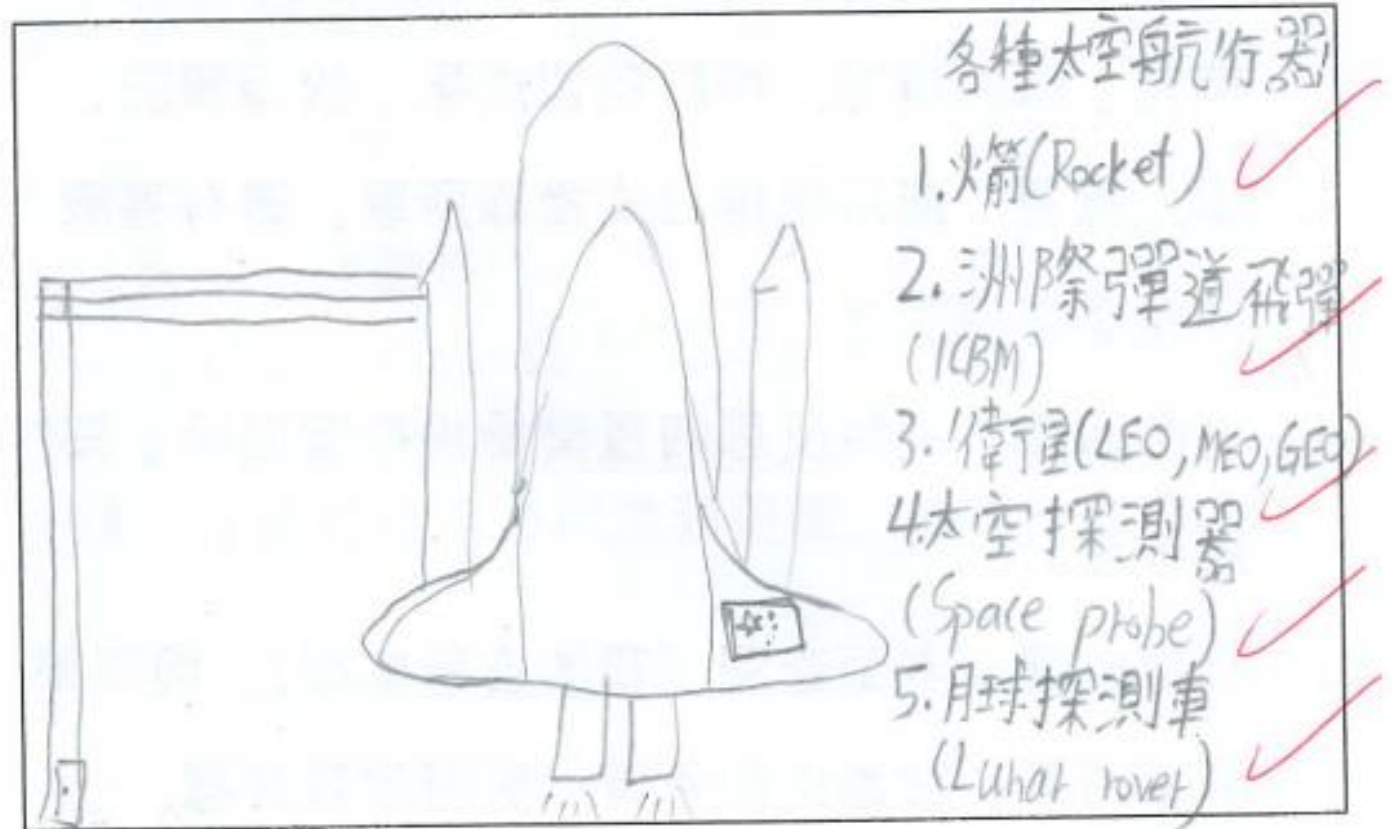 各種太空航行器
1.火箭(Rocket)
2.洲際彈道飛彈
(ICBM)
3.衛星(LEO,MEO,GEO)
4.太空探測器
(Space probe)
5.月球探測車
(Lunar rover)